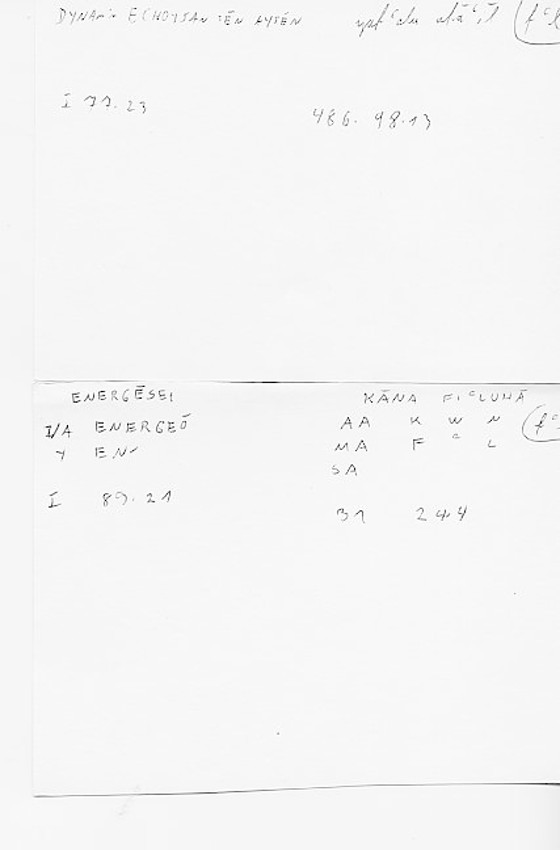 DYNAMIN ECHOYSAN TĒN AYTĒN
I 77.23 486. 98.13
ENERGĒSEI KĀNA FIᶜLUHĀ
I/A ENERGEŌ AA K W N
Y EN MA F ᶜ L
SA
I 89.21 31 244